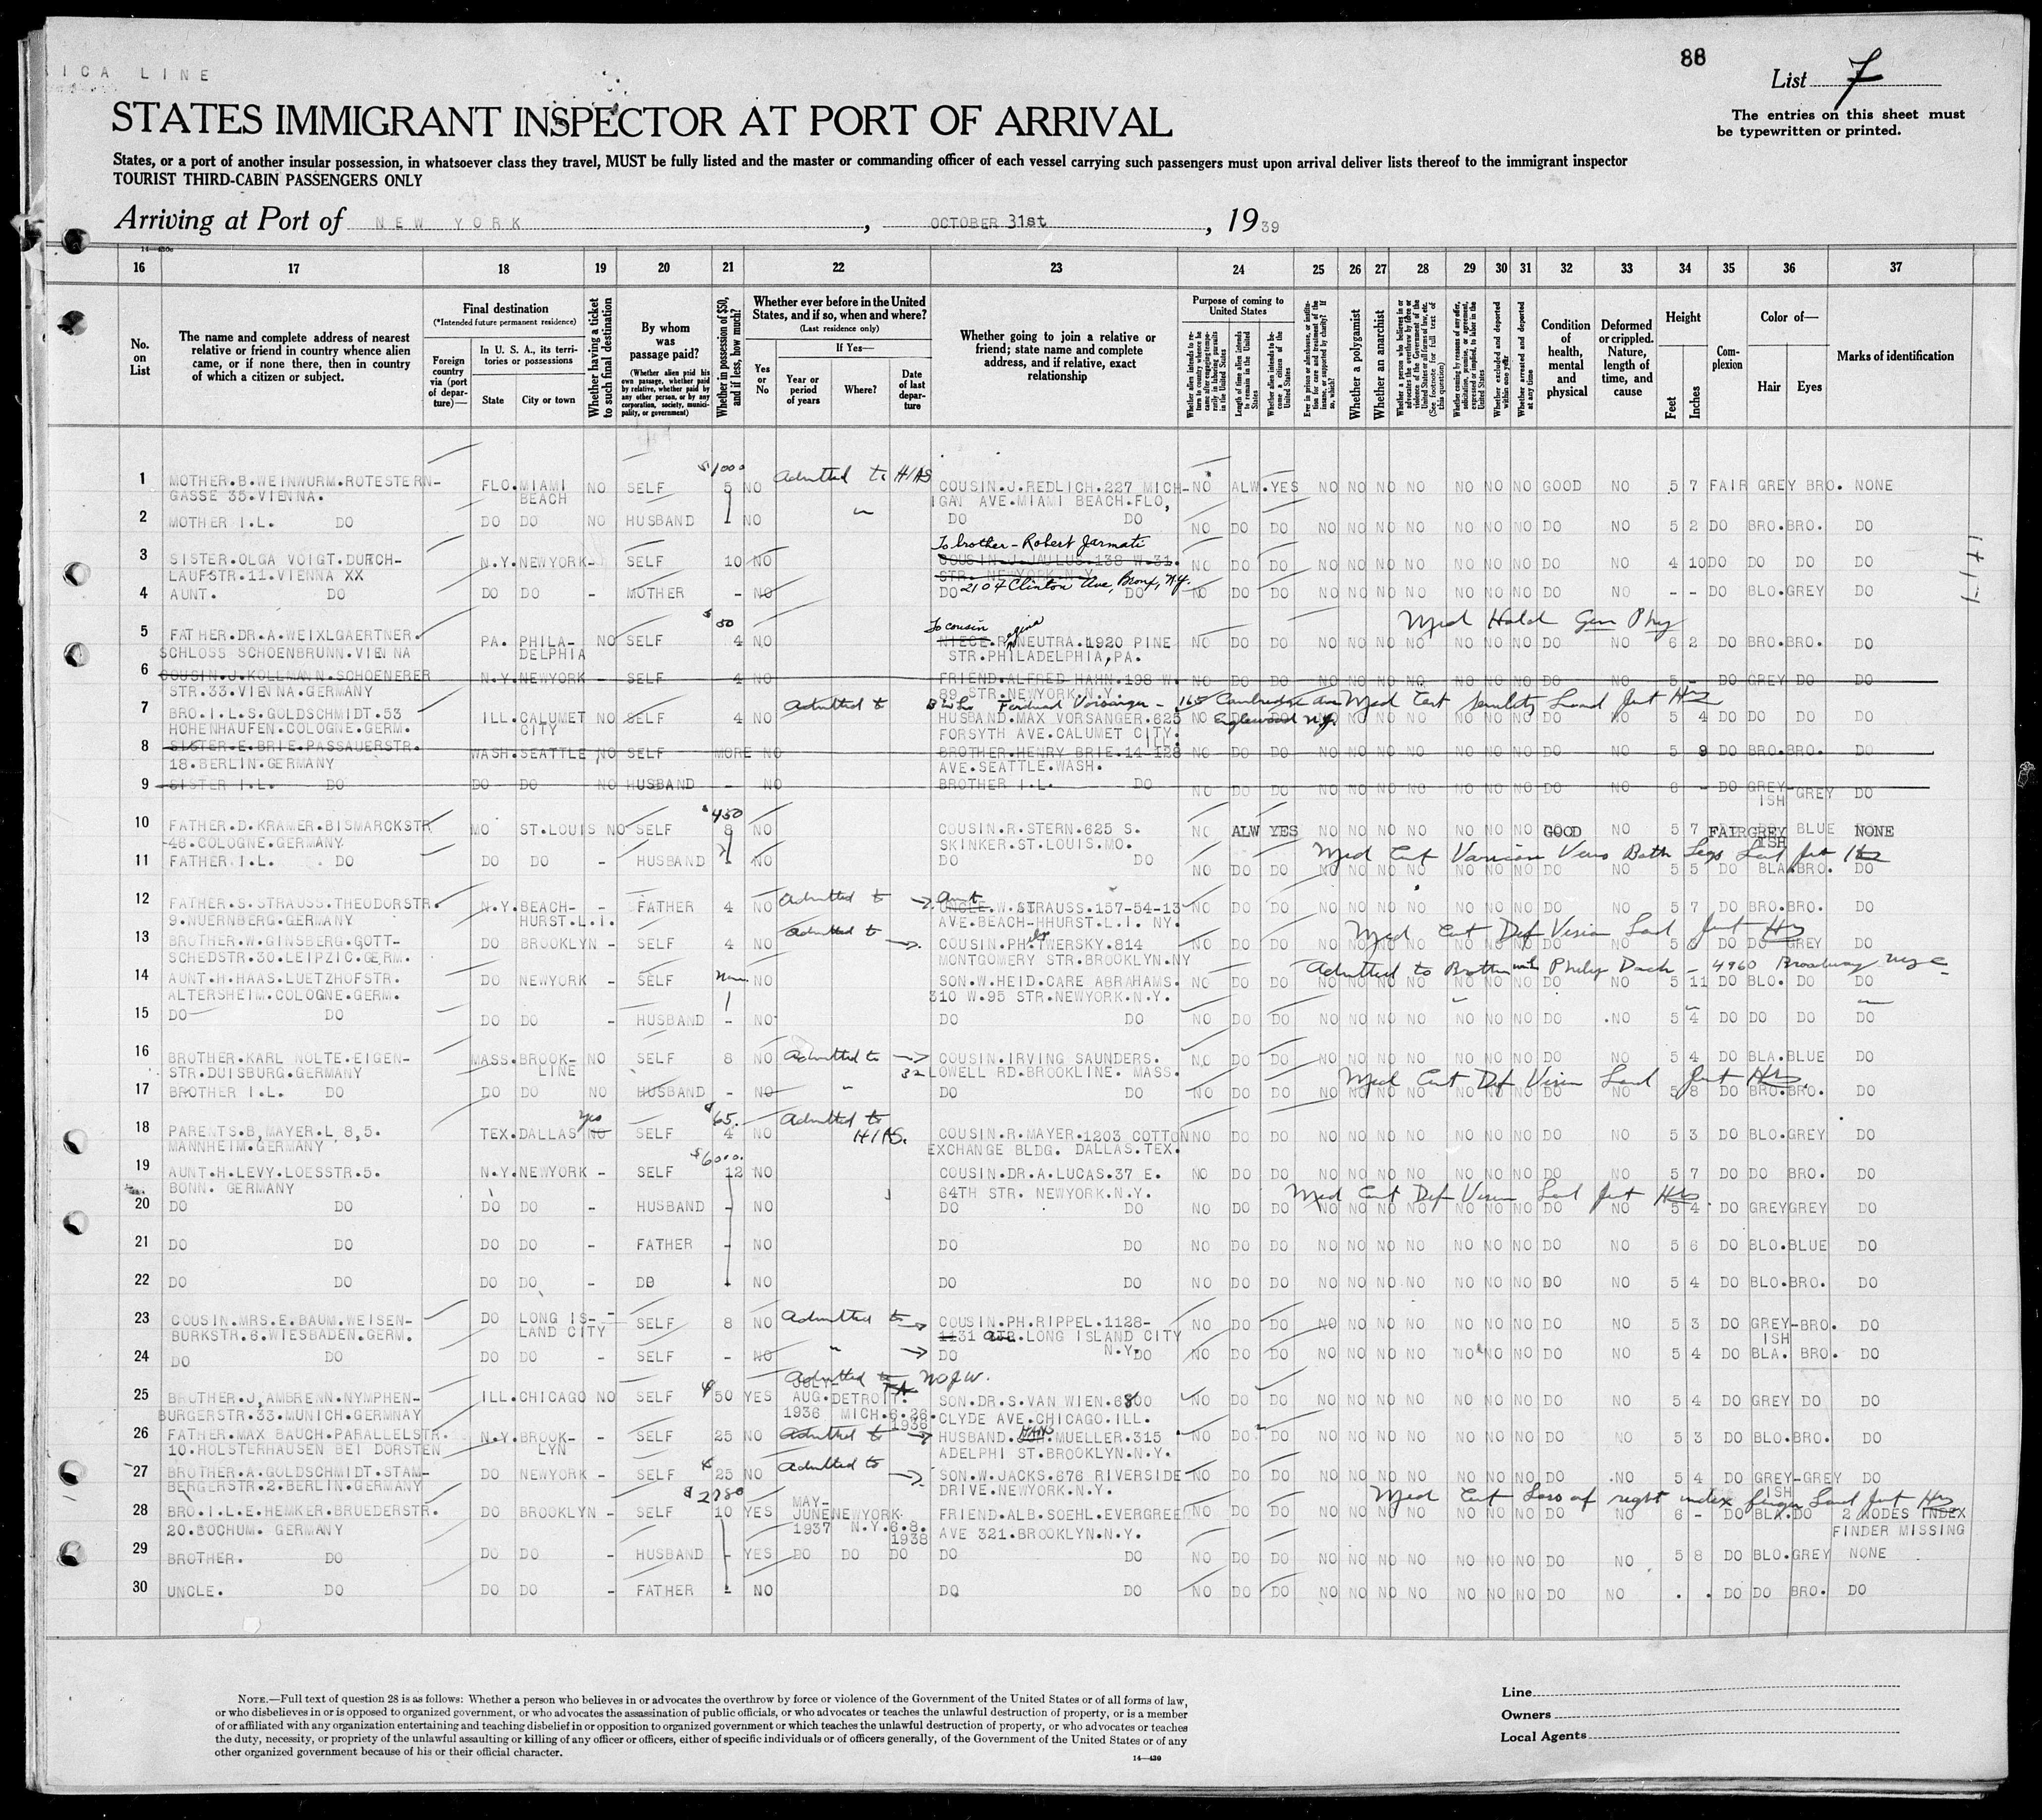 88
ICA LINE
List 7
STATES IMMIGRANT INSPECTOR AT PORT OF ARRIVAL
The entries on this sheet must
be typewritten or printed.
States, or a port of another insular possession, in whatsoever class they travel, MUST be fully listed and the master or commanding officer of each vessel carrying such passengers must upon arrival deliver lists thereof to the immigrant inspector
TOURIST THIRD-CABIN PASSENGERS ONLY
Arriving at Port of NEW YORK, OCTOBER 31st, 1939
14—430c
16 17 18 19 20 21 22 23 24 25 26 27 28 29 30 31 32 33 34 35 36 37
No. on List
The name and complete address of nearest relative or friend in country whence alien came, or if none there, then in country of which a citizen or subject.
Final destination
(*Intended future permanent residence)
Foreign country via (port of departure)—
In U. S. A., its territories or possessions
State
City or town
Whether having a ticket to such final destination
By whom was passage paid?
(Whether alien paid his own passage, whether paid by relative, whether paid by any other person, or by any corporation, society, municipality, or government)
Whether in possession of $50, and if less, how much?
Whether ever before in the United States, and if so, when and where?
(Last residence only)
Yes or No
If Yes—
Year or period of years
Where?
Date of last departure
Whether going to join a relative or friend; state name and complete address, and if relative, exact relationship
Purpose of coming to United States
Length of time alien intends to remain in the United States
Whether alien intends to become a citizen of the United States
Whether a polygamist
Whether an anarchist
Whether excluded and deported within one year
Whether arrested and deported at any time
Condition of health, mental and physical
Deformed or crippled. Nature, length of time, and cause
Height
Feet
Inches
Complexion
Color of—
Hair
Eyes
Marks of identification
$1000 Admitted to HIAS
1 MOTHER.B.WEINWURM.ROTESTERN- FLO. MIAMI NO SELF 5 NO COUSIN.J.REDLICH.227 MICH- NO ALW. YES NO NO NO NO NO NO NO GOOD NO 5 7 FAIR GREY BRO. NONE
GASSE 35.VIENNA. BEACH IGAN AVE.MIAMI BEACH.FLO,
2 MOTHER I.L. DO DO DO NO HUSBAND - NO DO DO NO DO DO NO NO NO NO NO NO NO DO NO 5 2 DO BRO. BRO. DO
To brother - Robert Jarmati
3 SISTER.OLGA VOIGT.DURCH- N.Y. NEWYORK - SELF 10 NO NO DO DO NO NO NO NO NO NO NO DO NO 4 10 DO DO DO DO
LAUFSTR.11.VIENNA XX STR. NEWYORK N.Y.
2104 Clinton Ave, Bronx, N.Y.
4 AUNT. DO DO DO - MOTHER - NO DO DO NO DO DO NO NO NO NO NO NO NO DO NO - - DO BLO. GREY DO
$50 To cousin Med Hold Gen Phy
5 FATHER.DR.A.WEIXLGAERTNER. PA. PHILA- NO SELF 4 NO NIECE.R.NEUTRA.1920 PINE NO DO DO NO NO NO NO NO NO NO DO NO 6 2 DO BRO. BRO. DO
SCHLOSS SCHOENBRUNN.VIENNA DELPHIA STR.PHILADELPHIA,PA.
6 COUSIN.J.KOLLMANN.SCHOENERER N.Y. NEWYORK - SELF 4 NO FRIEND.ALFRED HAHN.198 W. NO DO DO NO NO NO NO NO NO NO DO NO 5 - DO GREY DO DO
STR.33.VIENNA.GERMANY 89 STR.NEWYORK.N.Y.
Admitted to Ferdinand Vorsanger - 165 Cambridge Ave Englewood N.J. Med Cert senility
7 BRO.I.L.S.GOLDSCHMIDT.53 ILL. CALUMET NO SELF 4 NO HUSBAND.MAX VORSANGER.625 NO DO DO NO NO NO NO NO NO NO DO NO 5 4 DO DO DO DO
HOHENHAUFEN.COLOGNE.GERM. CITY FORSYTH AVE.CALUMET CITY. ILL.
8 SISTER.E.BRIE.PASSAUERSTR. WASH. SEATTLE NO SELF MORE NO BROTHER.HENRY BRIE.14-128 NO DO DO NO NO NO NO NO NO NO DO NO 5 9 DO BRO. BRO. DO
18.BERLIN.GERMANY AVE.SEATTLE.WASH.
9 SISTER I.L. DO DO DO NO HUSBAND - NO BROTHER I.L. DO NO DO DO NO NO NO NO NO NO NO DO NO 6 - DO GREY-ISH GREY DO
$450
10 FATHER.D.KRAMER.BISMARCKSTR MO ST.LOUIS NO SELF 8 NO COUSIN.R.STERN.625 S. NO ALW YES NO NO NO NO NO NO NO GOOD NO 5 7 FAIR GREY ISH BLUE NONE
46.COLOGNE.GERMANY SKINKER.ST.LOUIS.MO.
Med Cert Varicose Veins Both Legs
11 FATHER I.L. DO DO DO - HUSBAND - NO DO DO NO DO DO NO NO NO NO NO NO NO DO NO 5 5 DO BLA. BRO. DO
Admitted to Aunt
12 FATHER.S.STRAUSS.THEODORSTR. N.Y. BEACH- - FATHER 4 NO UNCLE.W.STRAUSS.157-54-13 NO DO DO NO NO NO NO NO NO NO DO NO 5 7 DO BRO. BRO. DO
9.NUERNBERG.GERMANY HURST.L.I. AVE.BEACH-HHURST.L.I. NY.
Admitted to Med Cert Def Vision
13 BROTHER.W.GINSBERG.GOTT- DO BROOKLYN - SELF 4 NO COUSIN.PH.TWERSKY.814 NO DO DO NO NO NO NO NO NO NO DO NO 5 DO DO GREY DO
SCHEDSTR.30.LEIPZIG.GERM. MONTGOMERY STR.BROOKLYN.NY
Admitted to Brother
4960 Broadway NYC
14 AUNT.H.HAAS.LUETZHOFSTR. DO NEWYORK - SELF NO SON.W.HEID.CARE ABRAHAMS. NO DO DO NO NO NO NO NO NO NO DO NO 5 11 DO BLO. DO DO
ALTERSHEIM.COLOGNE.GERM. 310 W.95 STR.NEWYORK.N.Y.
15 DO DO DO DO - HUSBAND - NO DO DO NO DO DO NO NO NO NO NO NO NO DO NO 5 4 DO DO DO DO
16 BROTHER.KARL NOLTE.EIGEN- MASS. BROOK- NO SELF 8 NO Admitted to COUSIN.IRVING SAUNDERS. NO DO DO NO NO NO NO NO NO NO DO NO 5 4 DO BLA. BLUE DO
STR.DUISBURG.GERMANY LINE 32 LOWELL RD.BROOKLINE. MASS.
Med Cert Def Vision
17 BROTHER I.L. DO DO DO NO HUSBAND - NO DO DO NO DO DO NO NO NO NO NO NO NO DO NO 5 8 DO BRO. BRO. DO
yes $65. Admitted to HIAS.
18 PARENTS.B,MAYER.L 8,5. TEX. DALLAS NO SELF 4 NO COUSIN.R.MAYER.1203 COTTON NO DO DO NO NO NO NO NO NO NO DO NO 5 3 DO BLO. GREY DO
MANNHEIM.GERMANY EXCHANGE BLDG. DALLAS.TEX.
$6000.
19 AUNT.H.LEVY.LOESSTR.5. N.Y. NEWYORK - SELF 12 NO COUSIN.DR.A.LUCAS.37 E. NO DO DO NO NO NO NO NO NO NO DO NO 5 7 DO DO BRO. DO
BONN. GERMANY 64TH STR. NEWYORK.N.Y.
Med Cert Def Vision
20 DO DO DO DO - HUSBAND - NO DO DO NO DO DO NO NO NO NO NO NO NO DO NO 5 4 DO GREY GREY DO
21 DO DO DO DO - FATHER - NO DO DO NO DO DO NO NO NO NO NO NO NO DO NO 5 6 DO BLO. BLUE DO
22 DO DO DO DO - DO - NO DO DO NO DO DO NO NO NO NO NO NO NO DO NO 5 4 DO BLO. BRO. DO
23 COUSIN.MRS.E.BAUM.WEISEN- DO LONG IS- - SELF 8 NO Admitted to COUSIN.PH.RIPPEL.1128- NO DO DO NO NO NO NO NO NO NO DO NO 5 3 DO GREY-ISH BRO. DO
BURKSTR.6.WIESBADEN.GERM. LAND CITY 1131 LONG ISLAND CITY N.Y.
24 DO DO DO DO - SELF - NO DO DO NO DO DO NO NO NO NO NO NO NO DO NO 5 4 DO BLA. BRO. DO
Admitted to
25 BROTHER.J,AMBRENN.NYMPHEN- ILL. CHICAGO NO SELF $50 YES JULY- AUG. 1936 DETROIT. MICH. 6.26. 1936 SON.DR.S.VAN WIEN.6800 NO DO DO NO NO NO NO NO NO NO DO NO 5 4 DO GREY DO DO
BURGERSTR.33.MUNICH.GERMNAY CLYDE AVE.CHICAGO.ILL.
26 FATHER.MAX BAUCH.PARALLELSTR. N.Y. BROOK- - SELF 25 NO Admitted to HUSBAND. HANS MUELLER.315 NO DO DO NO NO NO NO NO NO NO DO NO 5 3 DO BLO. BRO. DO
10.HOLSTERHAUSEN BEI DORSTEN LYN ADELPHI ST.BROOKLYN.N.Y.
27 BROTHER.A.GOLDSCHMIDT.STAM- DO NEWYORK - SELF 25 NO Admitted to SON.W.JACKS.676 RIVERSIDE NO DO DO NO NO NO NO NO NO NO DO NO 5 4 DO GREY-ISH GREY DO
BERGERSTR.2.BERLIN.GERMANY DRIVE.NEWYORK.N.Y.
Med Cert Loss of right index finger
28 BRO.I.L.E.HEMKER.BRUEDERSTR. DO BROOKLYN - SELF 10 YES MAY- JUNE 1937 NEWYORK. N.Y. 6.8. 1938 FRIEND.ALB.SOEHL.EVERGREEN NO DO DO NO NO NO NO NO NO NO DO NO 6 - DO BLA. DO 2 NODES INDEX
20.BOCHUM. GERMANY AVE 321.BROOKLYN.N.Y. FINDER MISSING
29 BROTHER. DO DO DO - HUSBAND - YES DO DO DO DO DO NO DO DO NO NO NO NO NO NO NO DO NO 5 8 DO BLO. GREY NONE
30 UNCLE. DO DO DO - FATHER - NO DO DO NO DO DO NO NO NO NO NO NO NO DO NO . . DO DO BRO. DO
NOTE.—Full text of question 28 is as follows: Whether a person who believes in or advocates the overthrow by force or violence of the Government of the United States or of all forms of law,
or who disbelieves in or is opposed to organized government, or who advocates the assassination of public officials, or who advocates or teaches the unlawful destruction of property, or is a member
of or affiliated with any organization entertaining and teaching disbelief in or opposition to organized government or which teaches the unlawful destruction of property, or who advocates or teaches
the duty, necessity, or propriety of the unlawful assaulting or killing of any officer or officers, either of specific individuals or of officers generally, of the Government of the United States or of any
other organized government because of his or their official character.
14—430
Line
Owners
Local Agents